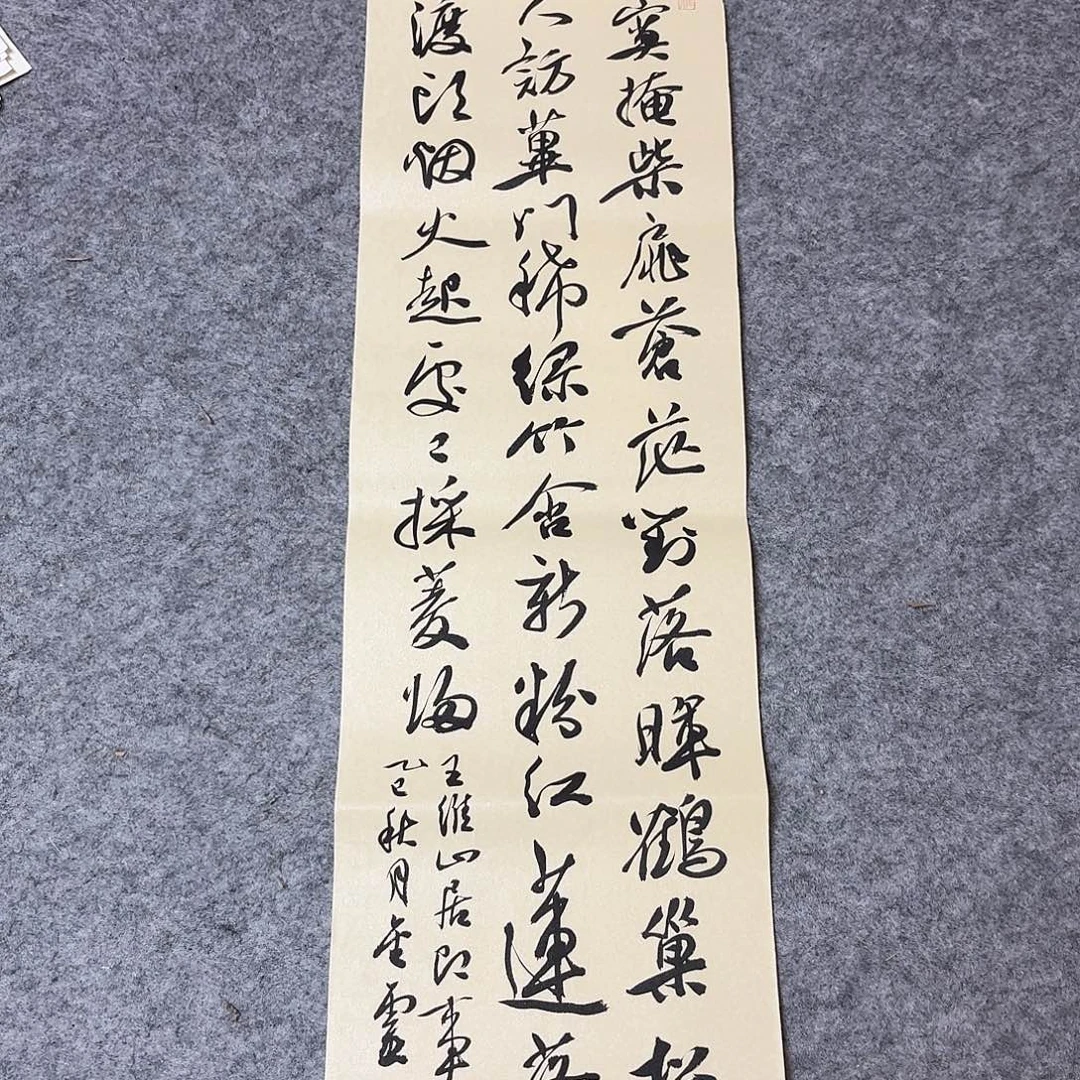 寞掩柴扉蒼茫對落暉鶴巢松
人訪蓽門稀綠竹含新粉紅蓮落
渡頭烟火起處々採菱歸
王維山居即事
乙巳秋月金靈